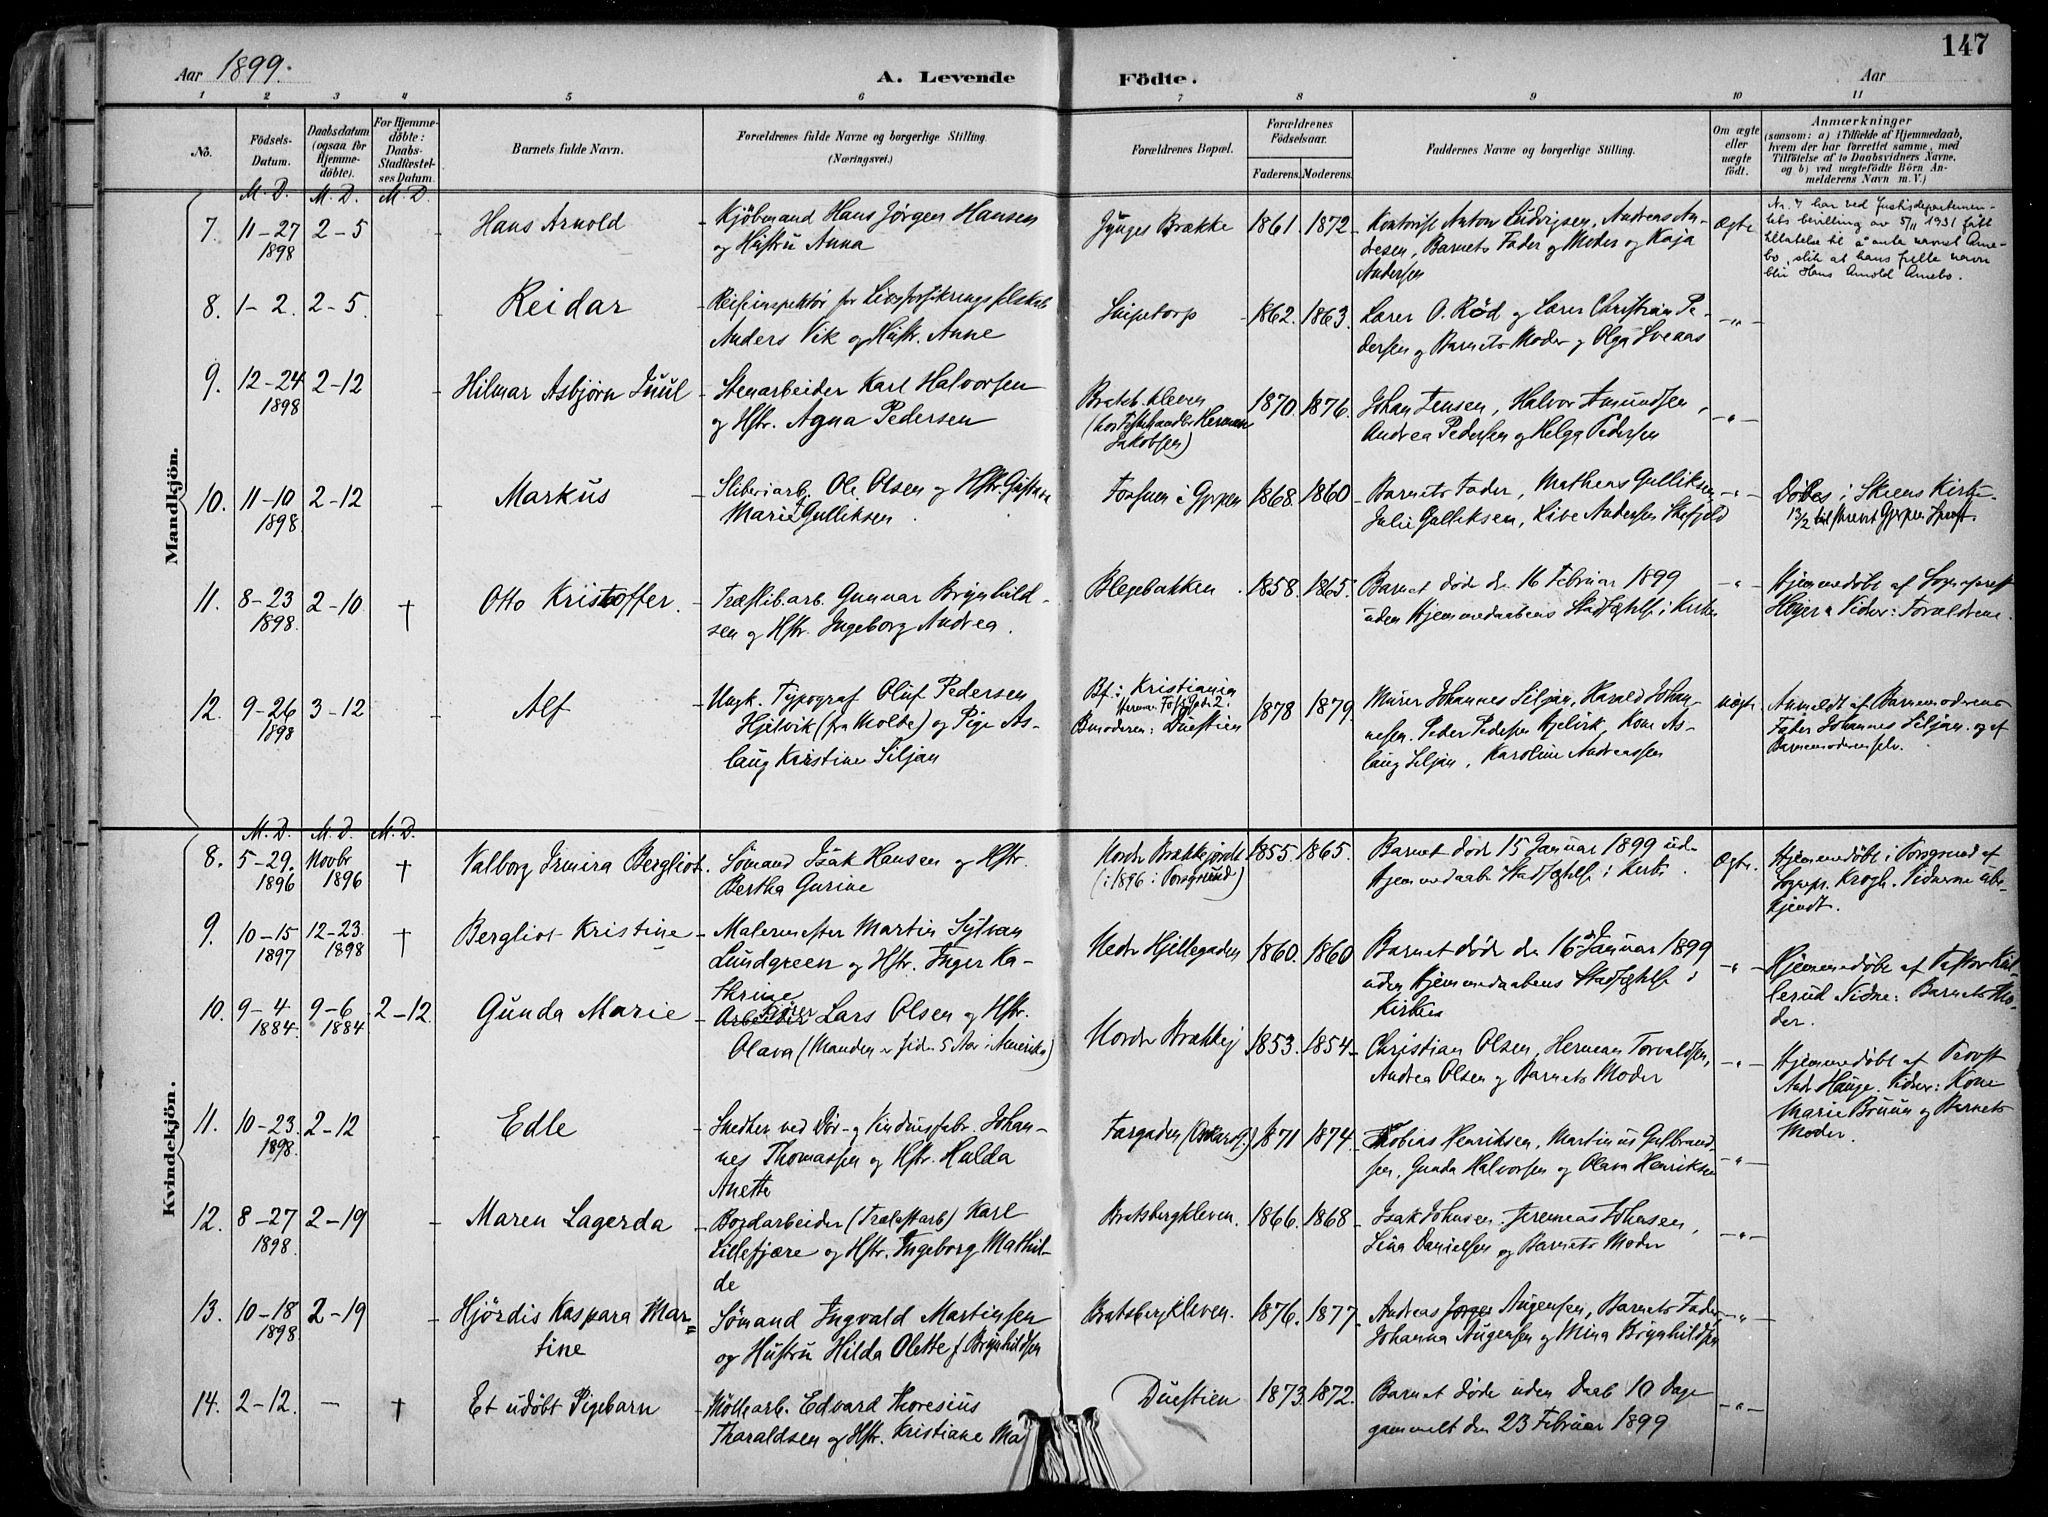 147
Aar 1899.
A. Levende
Födte.
Aar
1 2 3 4 5 6 7 8 9 10 11
No.
Födsels-
Datum.
Daabsdatum
(ogsaa for
Hjemme-
döbte).
For Hjemme-
döbte:
Daabs-
Stadfæstel-
ses Datum.
Barnets fulde Navn.
Forældrenes fulde Navne og borgerlige Stilling.
(Næringsvei.)
Forældrenes Bopæl.
Forældrenes
Födselsaar.
Faderens. Moderens.
Faddernes Navne og borgerlige Stilling.
Om ægte
eller
uægte
födt.
Anmærkninger
(saasom: a) i Tilfælde af Hjemmedaab,
hvem der har forrettet samme, med
Tilföielse af to Daabsvidners Navne,
og b) ved uægtefödte Börn An-
melderens Navn m. V.)
M. D. M. D. M. D.
Mandkjön.
7. 11-27
1898
2-5
Hans Arnold
Kjöbmand Hans Jörgen Hansen
og Hustru Anna
Jynges Brække
1861 1872
Kontorist Anton Ludvigsen, Andreas An-
dresen, Barnets Fader og Moder og Kaja
Andersen
Ægte
Nr. 7 har ved Justisdepartemen-
tets bevilling av 5/11 1931 fått
tillatelse til å anta navnet Arne-
bo, slik at hans fulle navn
blir Hans Arnold Arnebo.
8. 1-2. 2-5.
Reidar
Reiseinspektör for Livsforsikringsselskab
Anders Vik og Hustr. Anne
Snipetorp
1862. 1863.
Lærer O. Rød og Lærer Christian Pe-
dersen og Barnets Moder og Olga Sveaas
-„-
9. 12-24
1898
2-12
Hilmar Asbjörn Juul
Stenarbeider Karl Halvorsen
og Hstr. Agna Pedersen
Bratsb.kleven
(hos Herman
Jakobsen)
1870. 1876.
Johan Jensen, Halvor Amundsen,
Andrea Pedersen og Helga Pedersen
-„-
10. 11-10
1898
2-12
Markus
Sliberiarb. Ole Olsen og Hstr. Gustava
Marie Gulliksen.
Fossum i Gjerpen
1868. 1860
Barnets Fader, Mathias Gulliksen
Julie Gulliksen, Live Andersen
-„-
Döbes i Skiens Kirke.
13/2 Gjerpen
11. 8-23
1898.
2-10 †
Otto Kristoffer.
Træslib.arb. Gunnar Brynhild-
sen og Hstr. Ingeborg Andrea.
Blegebakken
1858. 1865.
Barnet døde d. 16 Februar 1899
uden Hjemmedaabens Stadfæstelse i Kirken
-„-
Hjemmedöbt af Sogneprest
Vidner: Forældrene.
12. 9-26
1898
3-12
Alf
Ungk. Typograf Oluf Pedersen
Hjelvik (fra Molde) og Pige As-
laug Kristine Siljan
Bf. i Kristiania
Bmoderen: Duestien
1878 1879.
Murer Johannes Siljan, Harald Johan-
nesen. Peder Pedersen Hjelvik, Kone As-
laug Siljan, Karoline Andreassen
uægte
Anmeldt af Barnemoderens
Fader Johannes Siljan og af
Barnemoderen selv.
M. D. M. D. M. D.
Kvindekjön.
8. 5-29.
1896
Novbr
1896
†
Valborg Irmira Bergliot.
Sömand Isak Hansen og Hstr.
Bertha Gurine
Nordre Brækkejordet
(i 1896 i Porsgrund)
1855. 1865.
Barnet døde 15 Januar 1899 uden
Hjemmedaabs Stadfæstelse i Kirke.
Ægte.
Hjemmedöbt i Porsgrund af
Sognepr. Krogh. Vidnerne ube-
kjendt.
9. 10-15
1897
12-23
1898
†
Bergliot Kristine
Malermester Martin Sylvan
Lundgreen og Hstr. Inger Ka-
thrine
Nedre Hjellegaden
1860. 1860
Barnet døde den 16de Januar 1899
uden Hjemmedaabens Stadfæstelse i
Kirken
-„-
Hjemmedöbt af Pastor
Vidne: Barnets Mo-
der.
10. 9-4
1884.
9-6
1884
2-12.
Gunda Marie
Arbeider Lars Olsen og Hstr.
Olava (Manden siden 5 Aar i Amerika)
Nordre Brækkej
1853. 1854
Christian Olsen, Herman Torvaldsen,
Andrea Olsen og Barnets Moder
-„-
Hjemmedöbt af Provst
Andr. Hauge. Vidner: Kone
Marie Bruun og Barnets
Moder.
11. 10-23.
1898.
2-12
Edle
Snedker ved Dör- og Vinduesfabr. Johan-
nes Thomassen og Hstr. Hulda
Anette
Fargaden
1871 1874
Tobias Henriksen, Martinus Gulbrand-
sen, Gunda Halvorsen og Olava Henriksen
-„-
12. 8-27
1898.
2-19
Maren Lagerda
Bordarbeider (Trælastarb) Karl
Lillefjære og Hstr. Ingeborg Mathil-
de
Bratsbergkleven.
1866. 1868
Isak Johnsen. Jeremeas Johnsen,
Lina Danielsen og Barnets Moder
-„-
13. 10-18
1898
2-19
Hjördis Kaspara Mar=
tine
Sömand Ingvald Martinsen
og Hustru Hilda Olette f. Brynhildsen
Bratsbergkleven.
1876. 1877.
Andreas Augensen, Barnets Fader
Johanna Augensen og Mina Brynhildsen
-„-
14. 2-12. - †
Et udöbt Pigebarn
Möllearb. Edvard Thoresius
Tharaldsen og Hstr. Kristiane Ma
Duestien
1873. 1872.
Barnet døde uden Daab 10 Dage
gammelt den 23 Februar 1899
-„-